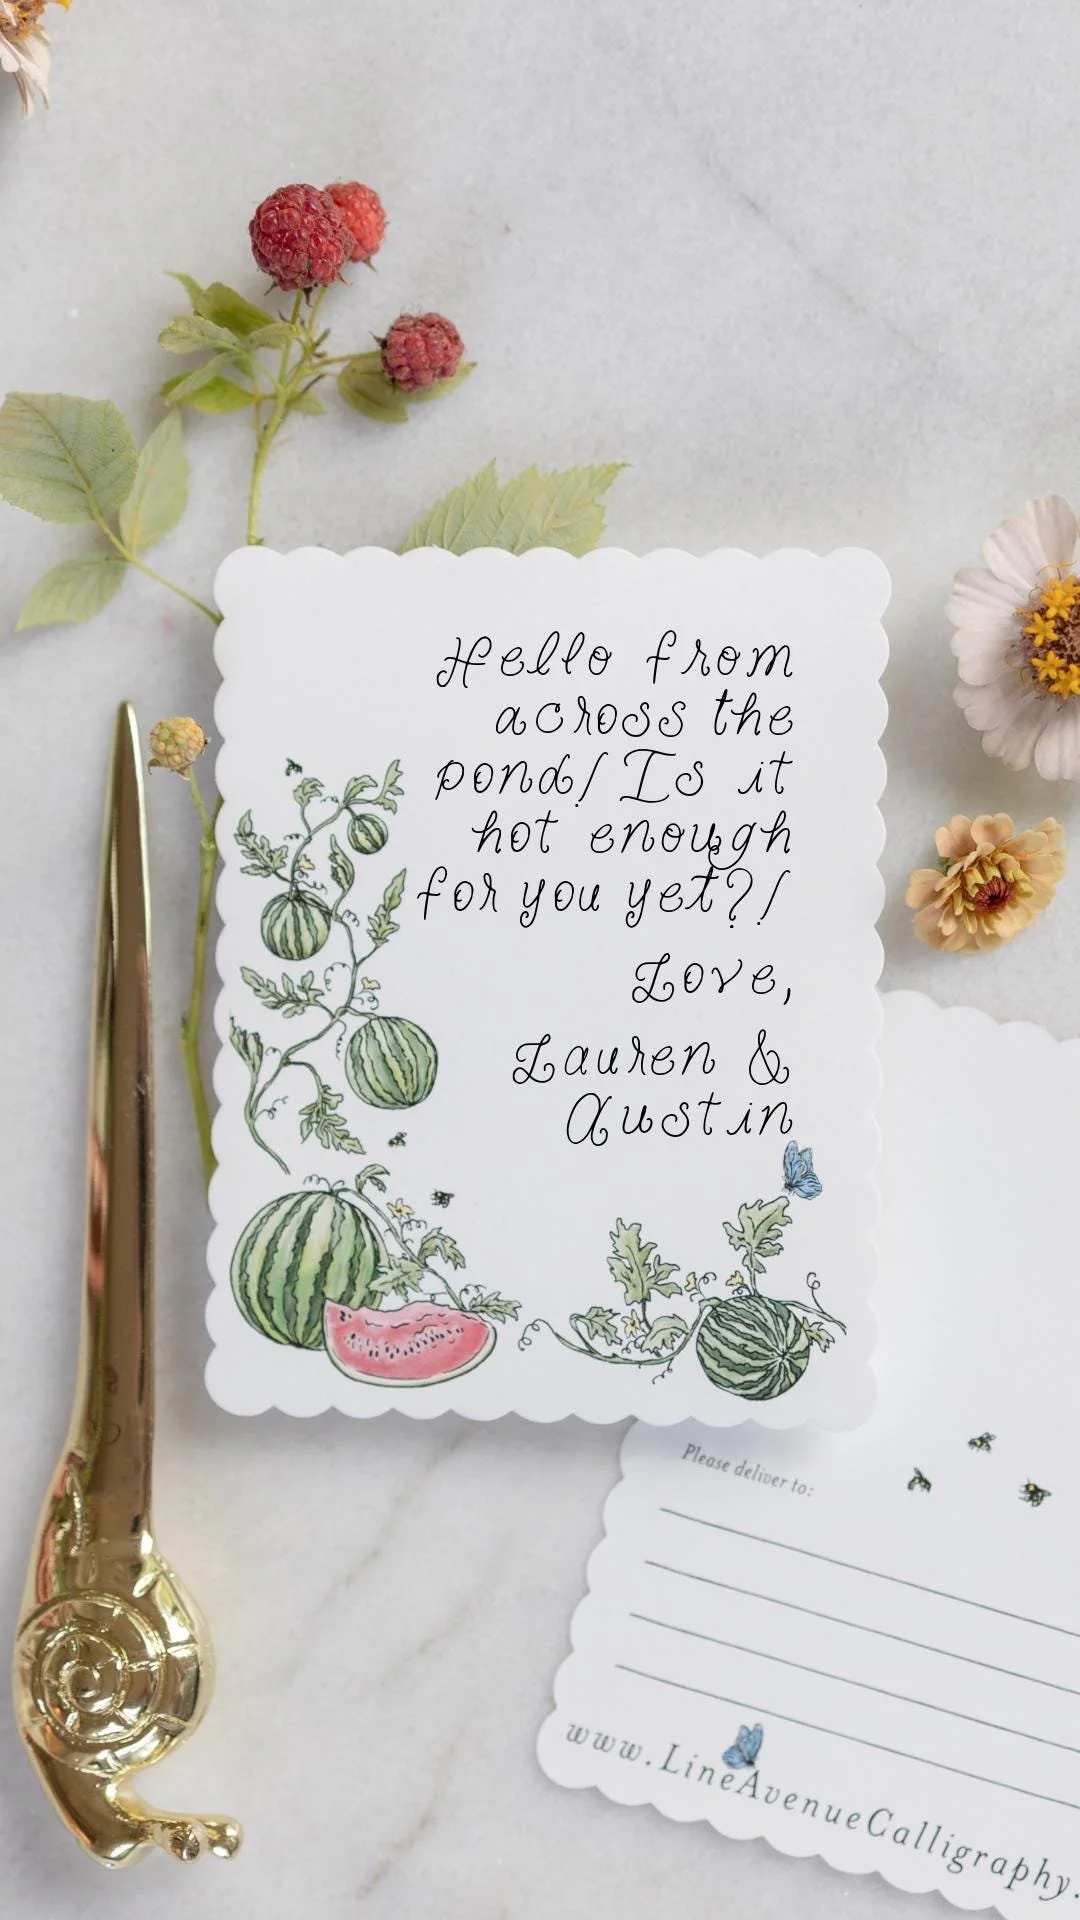 Hello from
across the
pond! Is it
hot enough
for you yet?!
Love,
Lauren &
Austin
Please deliver to:
www.LineAvenueCalligraphy.